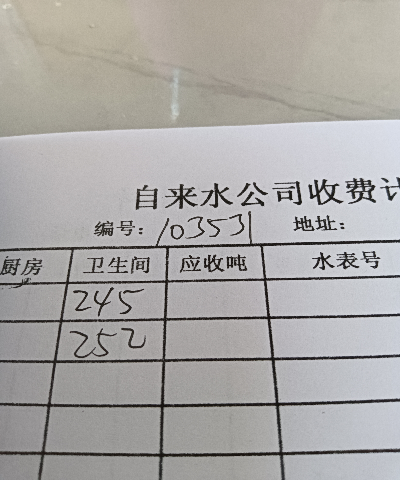 自来水公司收费计
编号: 103531 地址:
厨房 卫生间 应收吨 水表号
245
252